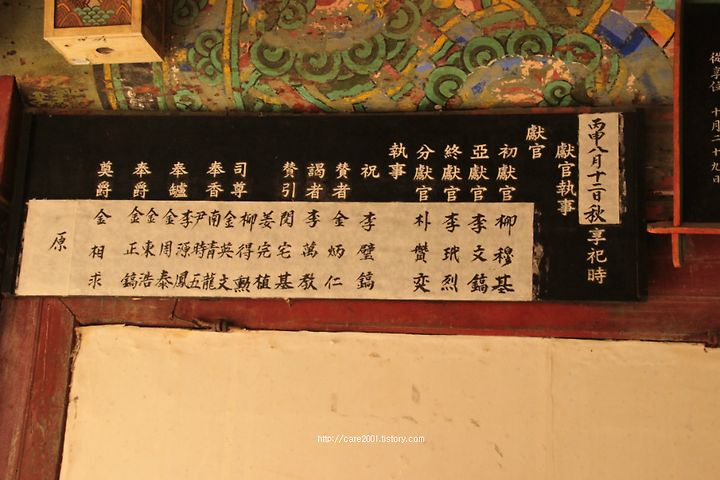 丙申八月十二日秋享祀時
獻官執事
獻官
初獻官 柳穆基
亞獻官 李文鎬
終獻官 李珉烈
分獻官 朴贊奕
執事
祝 李璧鎬
贊者 金炳仁
謁者 李萬敎
贊引 閔宅基
姜完植
司尊 柳得勳
金英文
奉香 南靑龍
尹時五
奉鑪 李源鳳
金周泰
奉爵 金東浩
金正鎬
奠爵 金相求
原
http://care2001.tistory.com